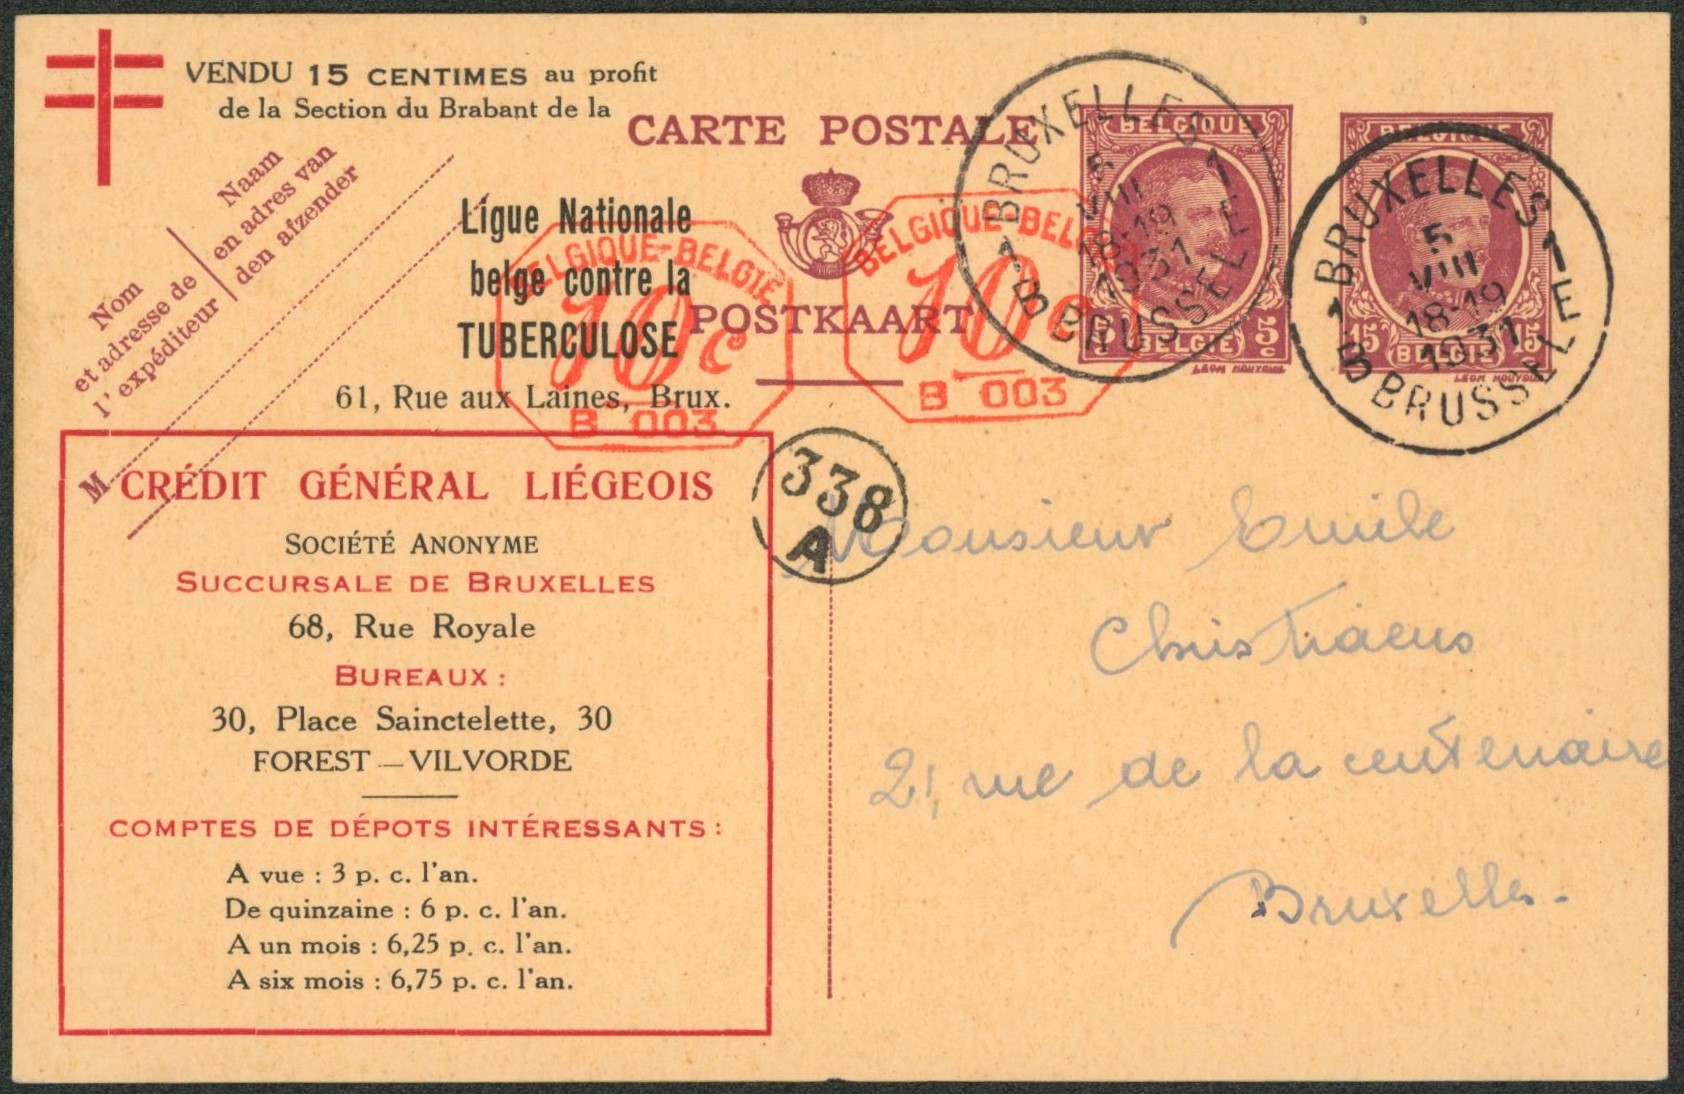 VENDU 15 CENTIMES au profit
de la Section du Brabant de la
CARTE POSTALE
Naam
en adres van
den afzender
Nom
et adresse de
l'expéditeur
Ligue Nationale
belge contre la
TUBERCULOSE
61, Rue aux Laines, Brux.
POSTKAART
BELGIQUE-BELGIË
10c
B 003
BELGIQUE-BELG
10c
B 003
BRUXELLES 1
5
VIII
18-19
1931
1 B BRUSSEL E
BELGIQUE
5 BELGIË 5
c
LEON HOUYOUX
BRUXELLES 1
5
VIII
18-19
1931
1 B BRUSSEL E
BELGIQUE
15 BELGIË 15
LEON HOUYOUX
M
CRÉDIT GÉNÉRAL LIÉGEOIS
SOCIÉTÉ ANONYME
SUCCURSALE DE BRUXELLES
68, Rue Royale
BUREAUX :
30, Place Sainctelette, 30
FOREST — VILVORDE
COMPTES DE DÉPOTS INTÉRESSANTS :
A vue : 3 p. c. l'an.
De quinzaine : 6 p. c. l'an.
A un mois : 6,25 p. c. l'an.
A six mois : 6,75 p. c. l'an.
338
A
Monsieur Emile
Christiaens
21, rue de la centenaire
Bruxelles.